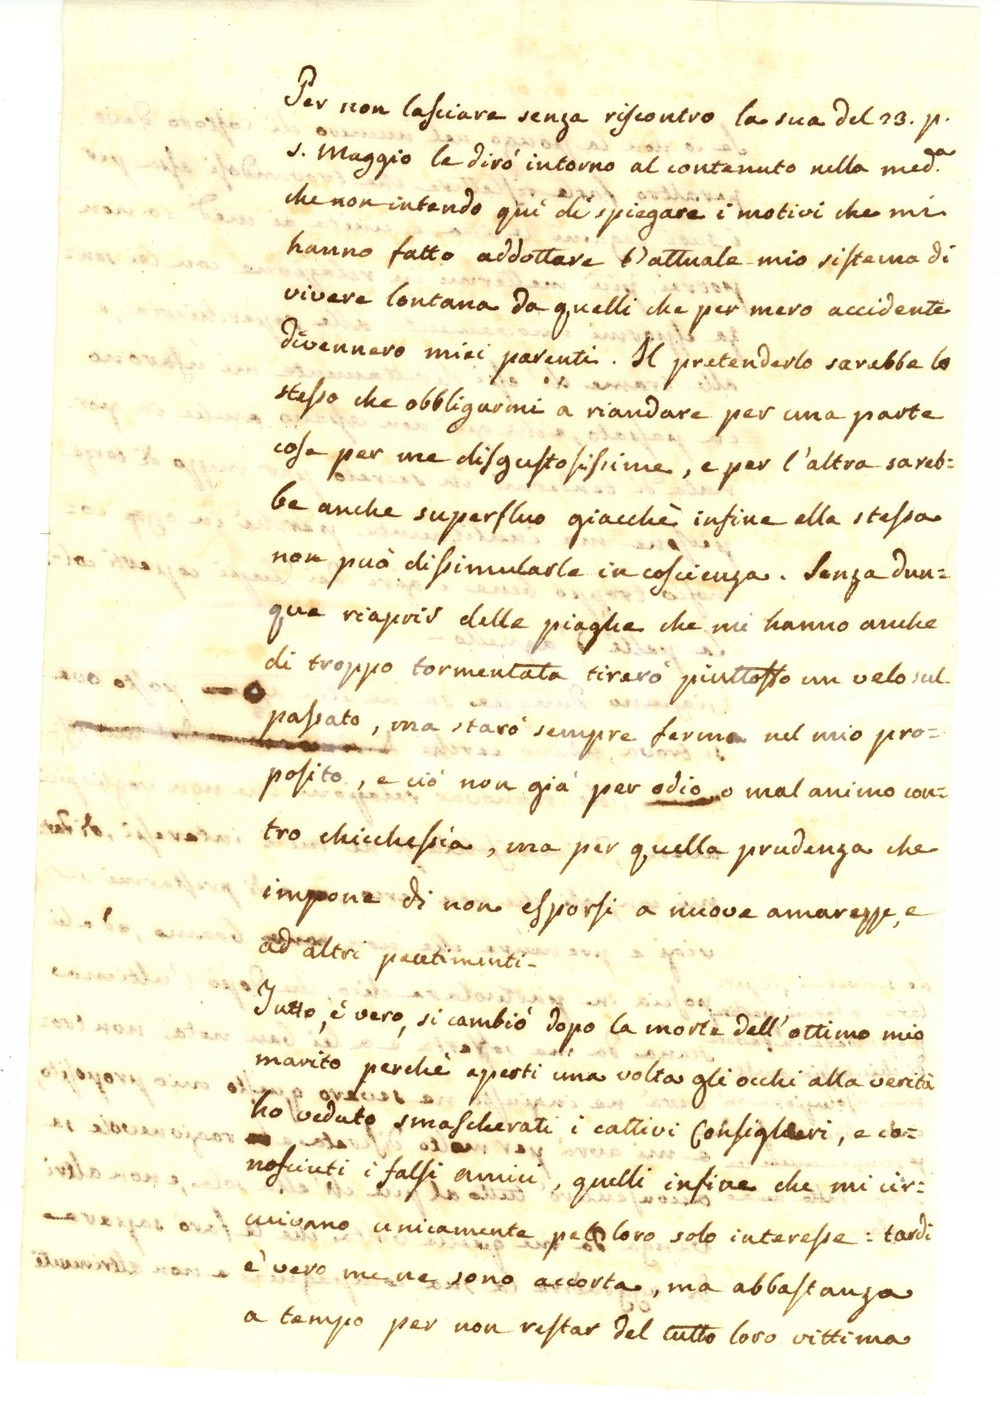 Per non lasciare senza riscontro la sua del 23. p.
s. Maggio le dirò intorno al contenuto nella med.a
che non intendo quì di spiegare i motivi che mi
hanno fatto addottare l'attuale mio sistema di
vivere lontana da quelli che per mero accidente
divennero miei parenti. Il pretenderlo sarebbe lo
stesso che obbligarmi a riandare per una parte
cose per me disgustosissime, e per l'altra sareb=
be anche superfluo giacchè infine ella stessa
non può dissimularle in coscienza. Senza dun=
que riaprir delle piaghe che mi hanno anche
di troppo tormentata tirerò piuttosto un velo sul
passato, ma starò sempre ferma nel mio pro=
posito, e ciò non già per odio o mal animo con=
tro chicchessia, ma per quella prudenza che
impone di non esporsi a nuove amarezze, e
ad altri pentimenti-
Tutto, è vero, si cambiò dopo la morte dell'ottimo mio
marito perchè aperti una volta gli occhi alla verità
ho veduto smascherati i cattivi Consiglieri, e co=
nosciuti i falsi amici, quelli infine che mi cir=
cuivano unicamente pel loro solo interesse: tardi
è vero me ne sono accorta, ma abbastanza
a tempo per non restar del tutto loro vittima